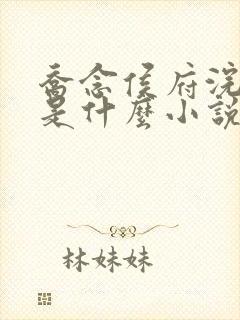 喬念侯府浣
是什麼小說
林妹妹